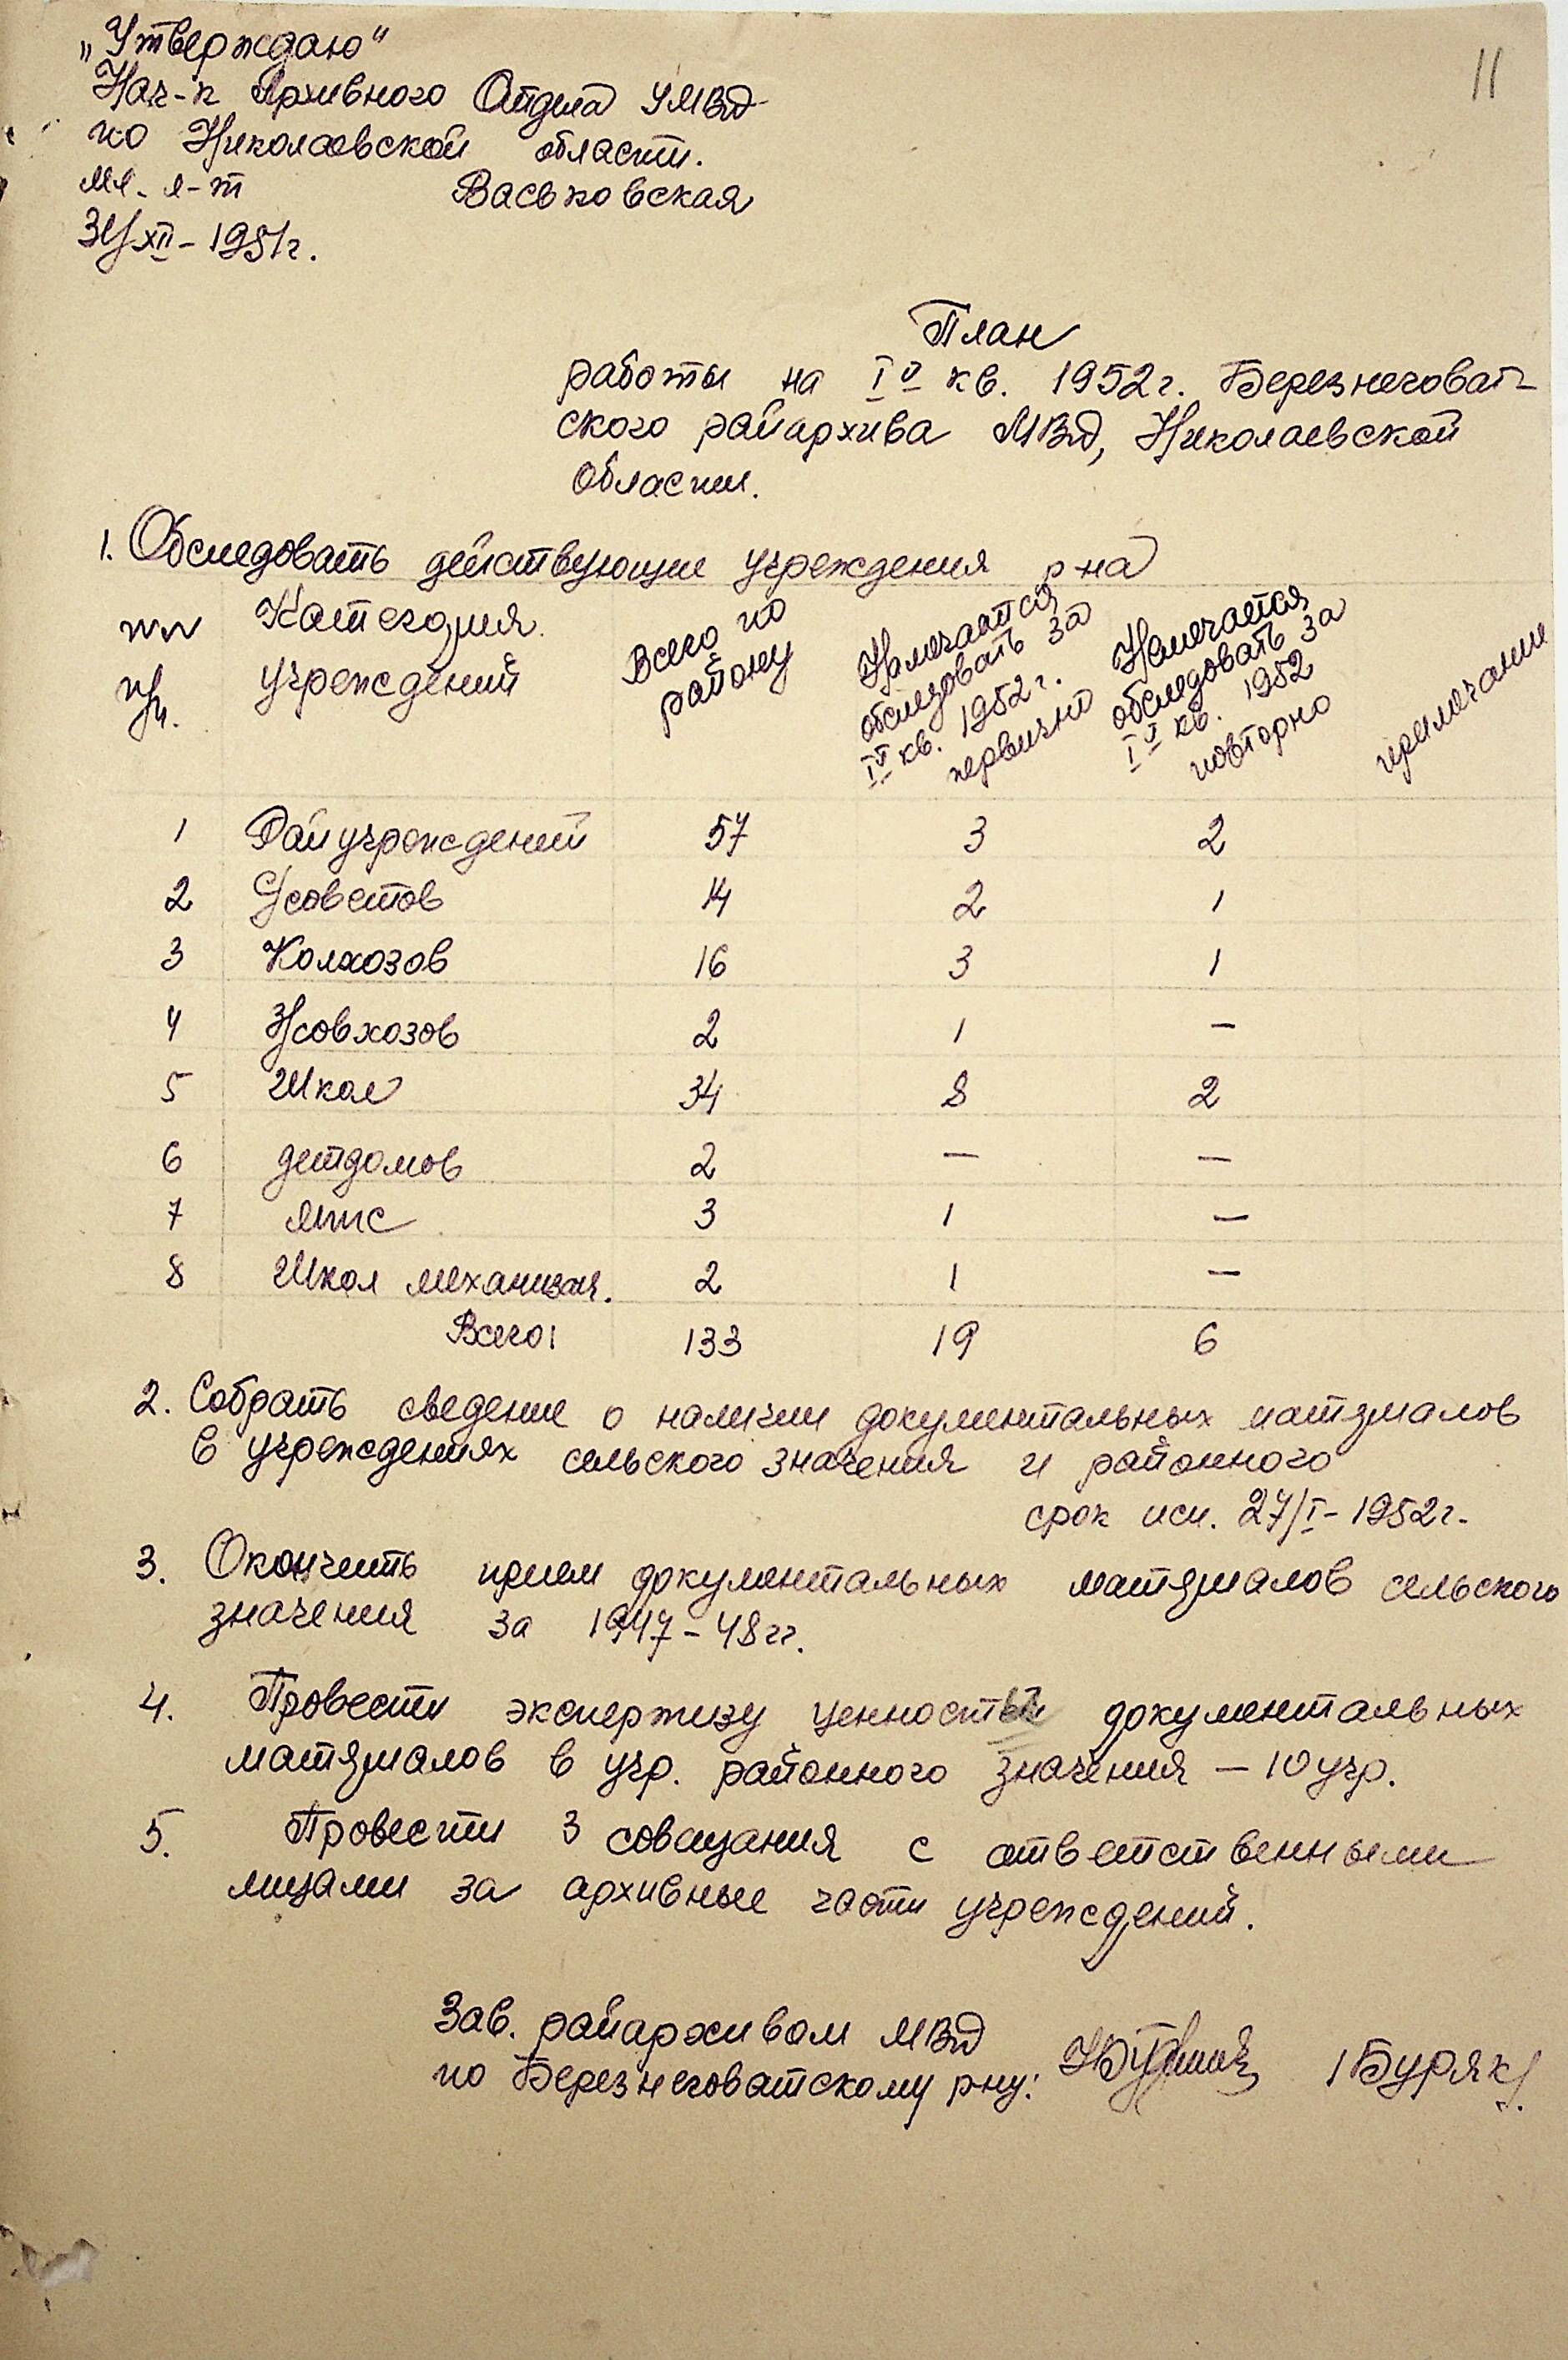 „Утверждаю“
11
Нач-к Архивного Отдела УМВД
по Николаевской области.
мл. л-т Васьковская
31/XII-1951г.
План
работы на Iй кв. 1952г. Березнеговат-
ского райархива МВД, Николаевской
области.
1. Обследовать действующие учреждения р-на
№№ п/п. Категория учреждений Всего по району Намечается обследовать за Iй кв. 1952г. первично Намечается обследовать за Iй кв. 1952 повторно примечание
1 Райучреждений 57 3 2
2 С/советов 14 2 1
3 Колхозов 16 3 1
4 совхозов 2 1 –
5 Школ 34 8 2
6 детдомов 2 – –
7 мтс 3 1 –
8 Школ механизац. 2 1 –
Всего: 133 19 6
2. Собрать сведение о наличии документальных материалов
в учреждениях сельского значения и районного
срок исп. 27/I-1952г.
3. Окончить прием документальных материалов сельского
значения за 1947-48гг.
4. Провести экспертизу документальных
материалов в учр. районного значения – 10 учр.
5. Провести 3 совещания с ответственными
лицами за архивные части учреждений.
Зав. райархивом МВД
по Березнеговатскому р-ну: /Буряк/.